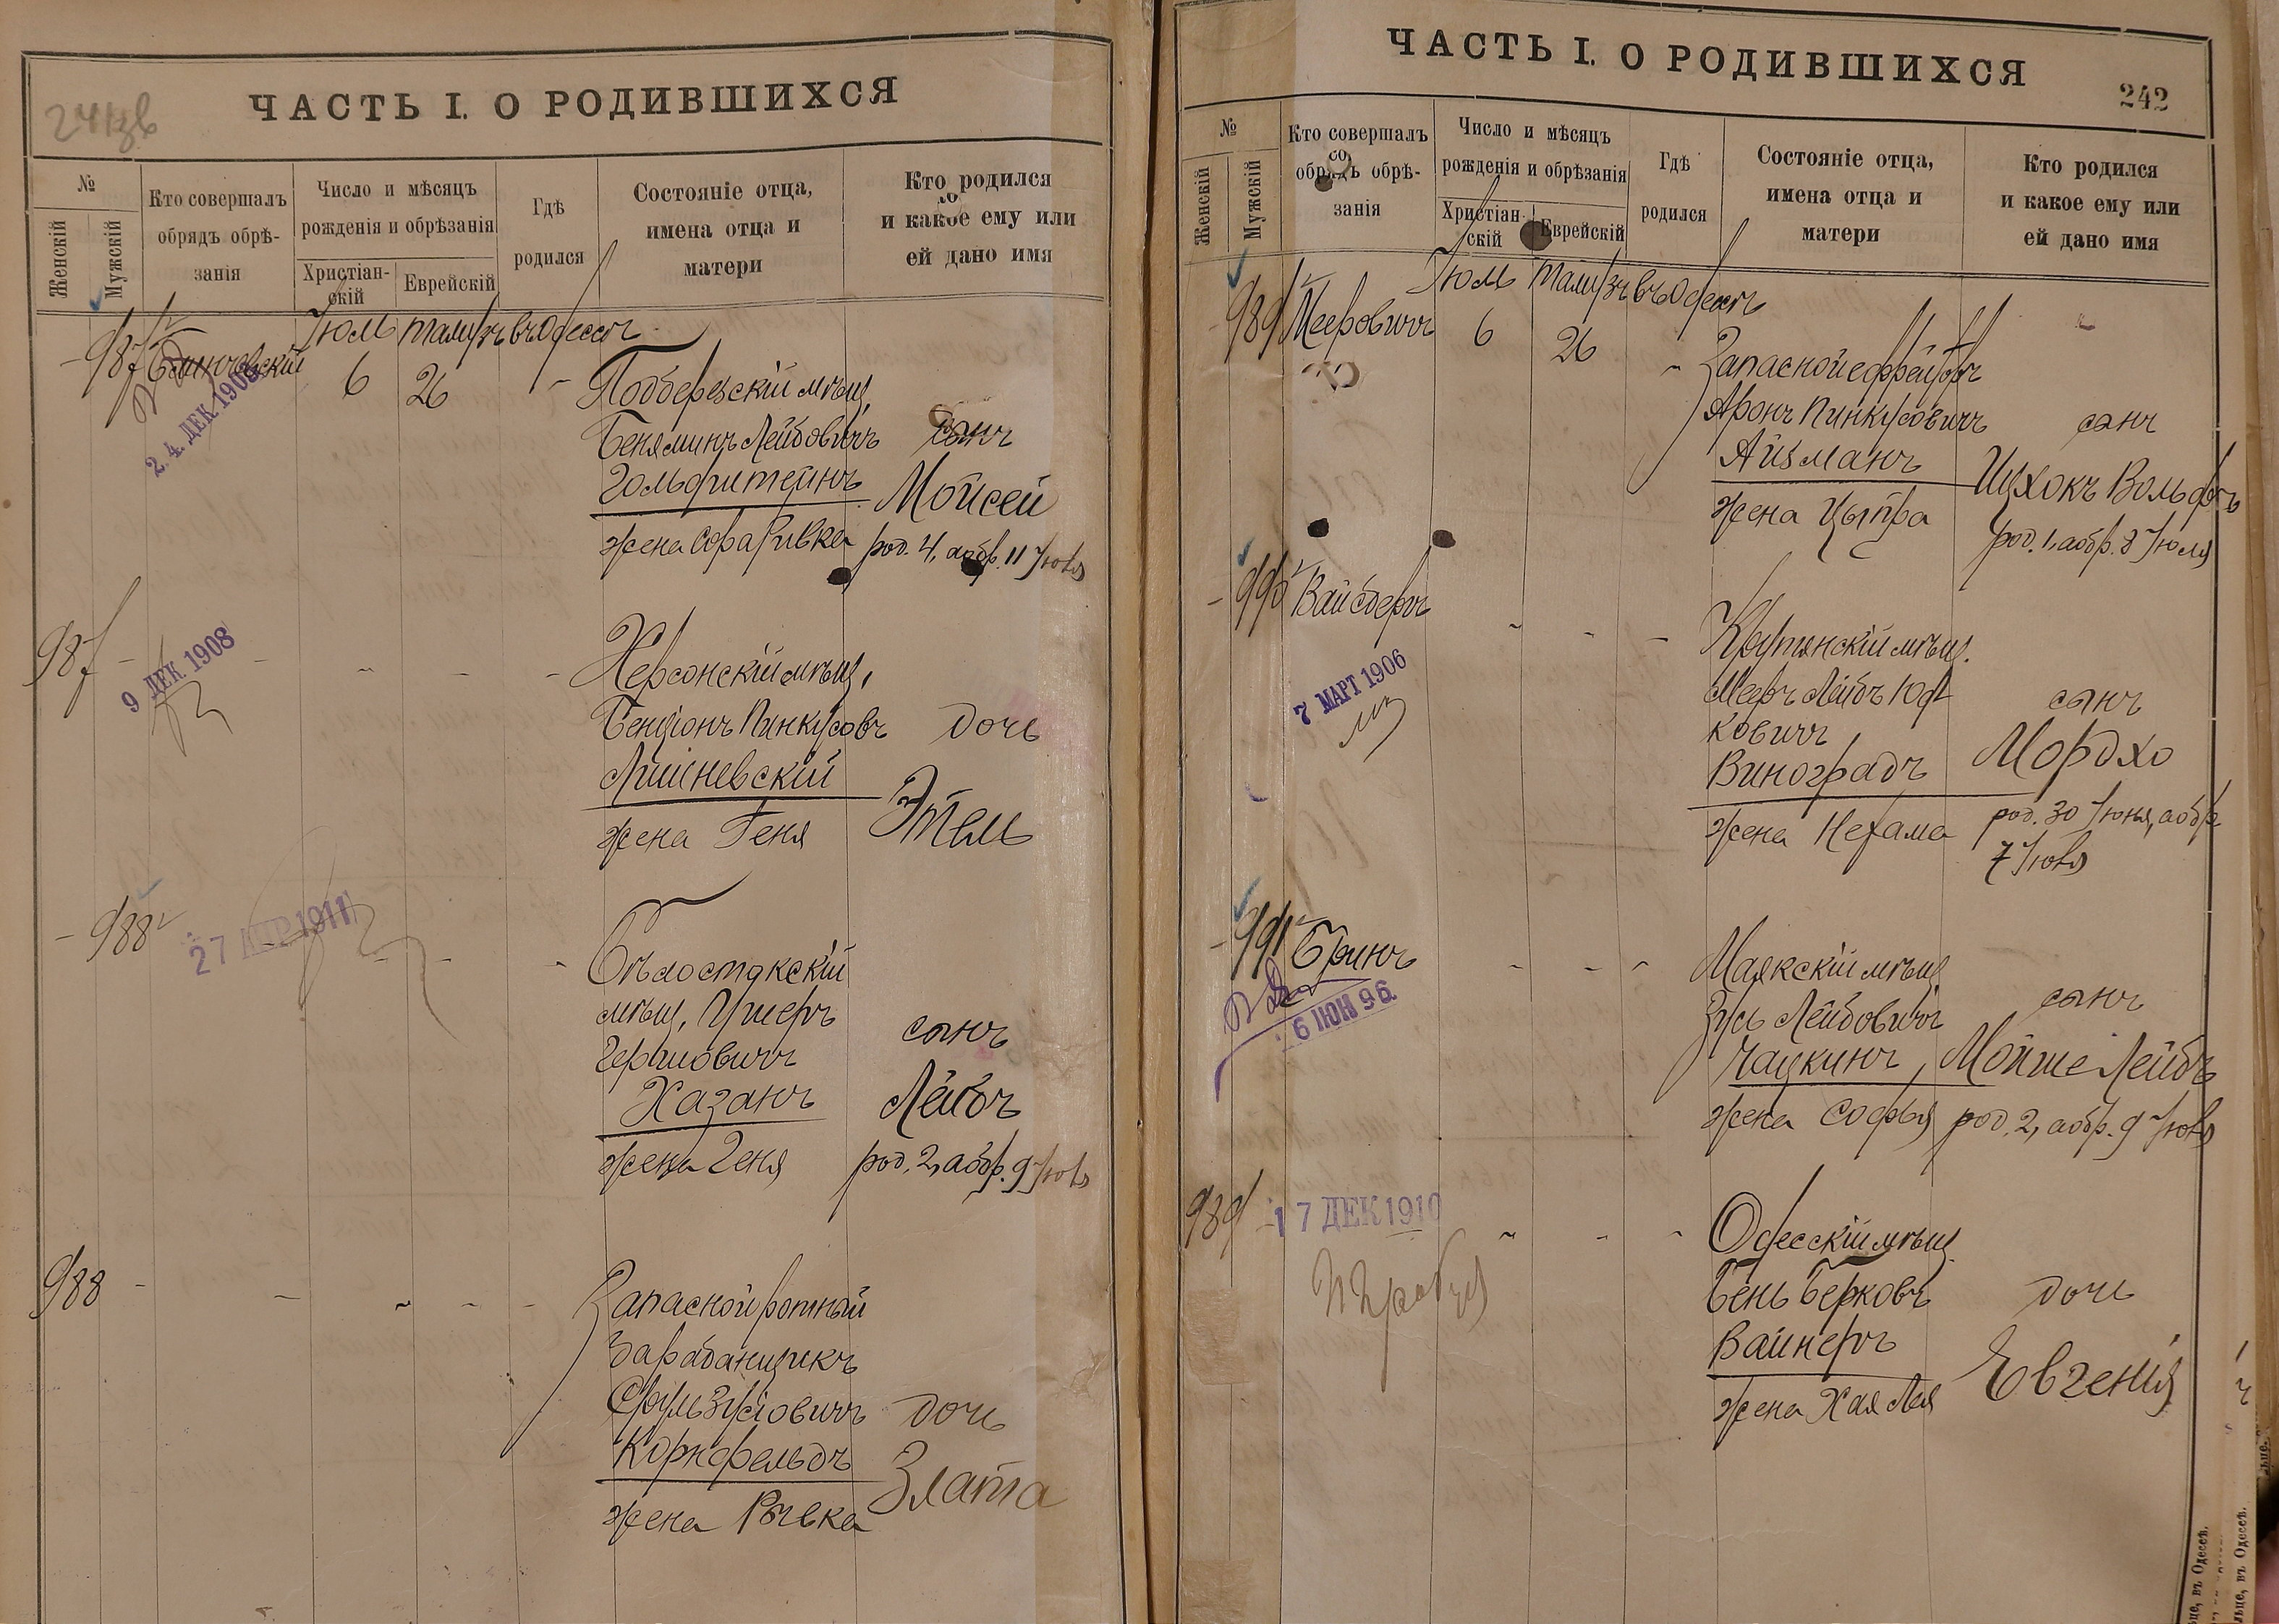 ЧАСТЬ I. О РОДИВШИХСЯ
№
Женскій
Мужскій
Кто совершалъ
обрядъ обрѣ-
занія
Число и мѣсяцъ
рожденія и обрѣзанія
Христіан-
скій
Еврейскій
Гдѣ
родился
Состояніе отца,
имена отца и
матери
Кто родился
и какое ему или
ей дано имя
Іюль Тамузъ въ Одессѣ
987
24 ДЕК 1908
6 26
Подберезскій мѣщ.
Беняминъ Лейбовичъ
Гольдштейнъ
жена Сора Ривка
сынъ
Мойсей
род. 4, а обр. 11 Іюля
987
9 ДЕК 1908
Херсонскій мѣщ.
Бенціонъ Пинкусовъ
Лишневскій
жена Геня
дочь
Этель
988
27 АПР 1911
Бѣлостокскій
мѣщ. Ушеръ
Гершовичъ
Хазанъ
жена Геня
сынъ
Лейбъ
род. 2, а обр. 9 Іюля
988
Запасной ротный
барабанщикъ
Сруль Зусіовичъ
Корнфельдъ
жена Рывка
дочь
Злата
ЧАСТЬ I. О РОДИВШИХСЯ
242
№
Женскій
Мужскій
Кто совершалъ
обрядъ обрѣ-
занія
Число и мѣсяцъ
рожденія и обрѣзанія
Христіан-
скій
Еврейскій
Гдѣ
родился
Состояніе отца,
имена отца и
матери
Кто родился
и какое ему или
ей дано имя
Іюль Тамузъ въ Одессѣ
989 Мееровичъ 6 26
Запасной ефрейторъ
Аронъ Пинкусовичъ
Айзманъ
жена Цыпра
сынъ
Ицхокъ Вольфъ
род. 1, а обр. 8 Іюля
990 Вайсбергъ
7 МАРТ 1906
Крутянскій мѣщ.
Мееръ Лейбъ Юд-
ковичъ
Виноградъ
жена Нехама
сынъ
Мордхо
род. 30 Іюня, а обр.
7 Іюля
991 Бринъ
6 ІЮН 96
Маякскій мѣщ.
Зусь Лейбовичъ
Чацкинъ
жена Софья
сынъ
Мойше Лейбъ
род. 2, а обр. 9 Іюля
989
17 ДЕК 1910
Одесскій мѣщ.
Бень Берковъ
Вайнеръ
жена Хая Лея
дочь
Евгенія